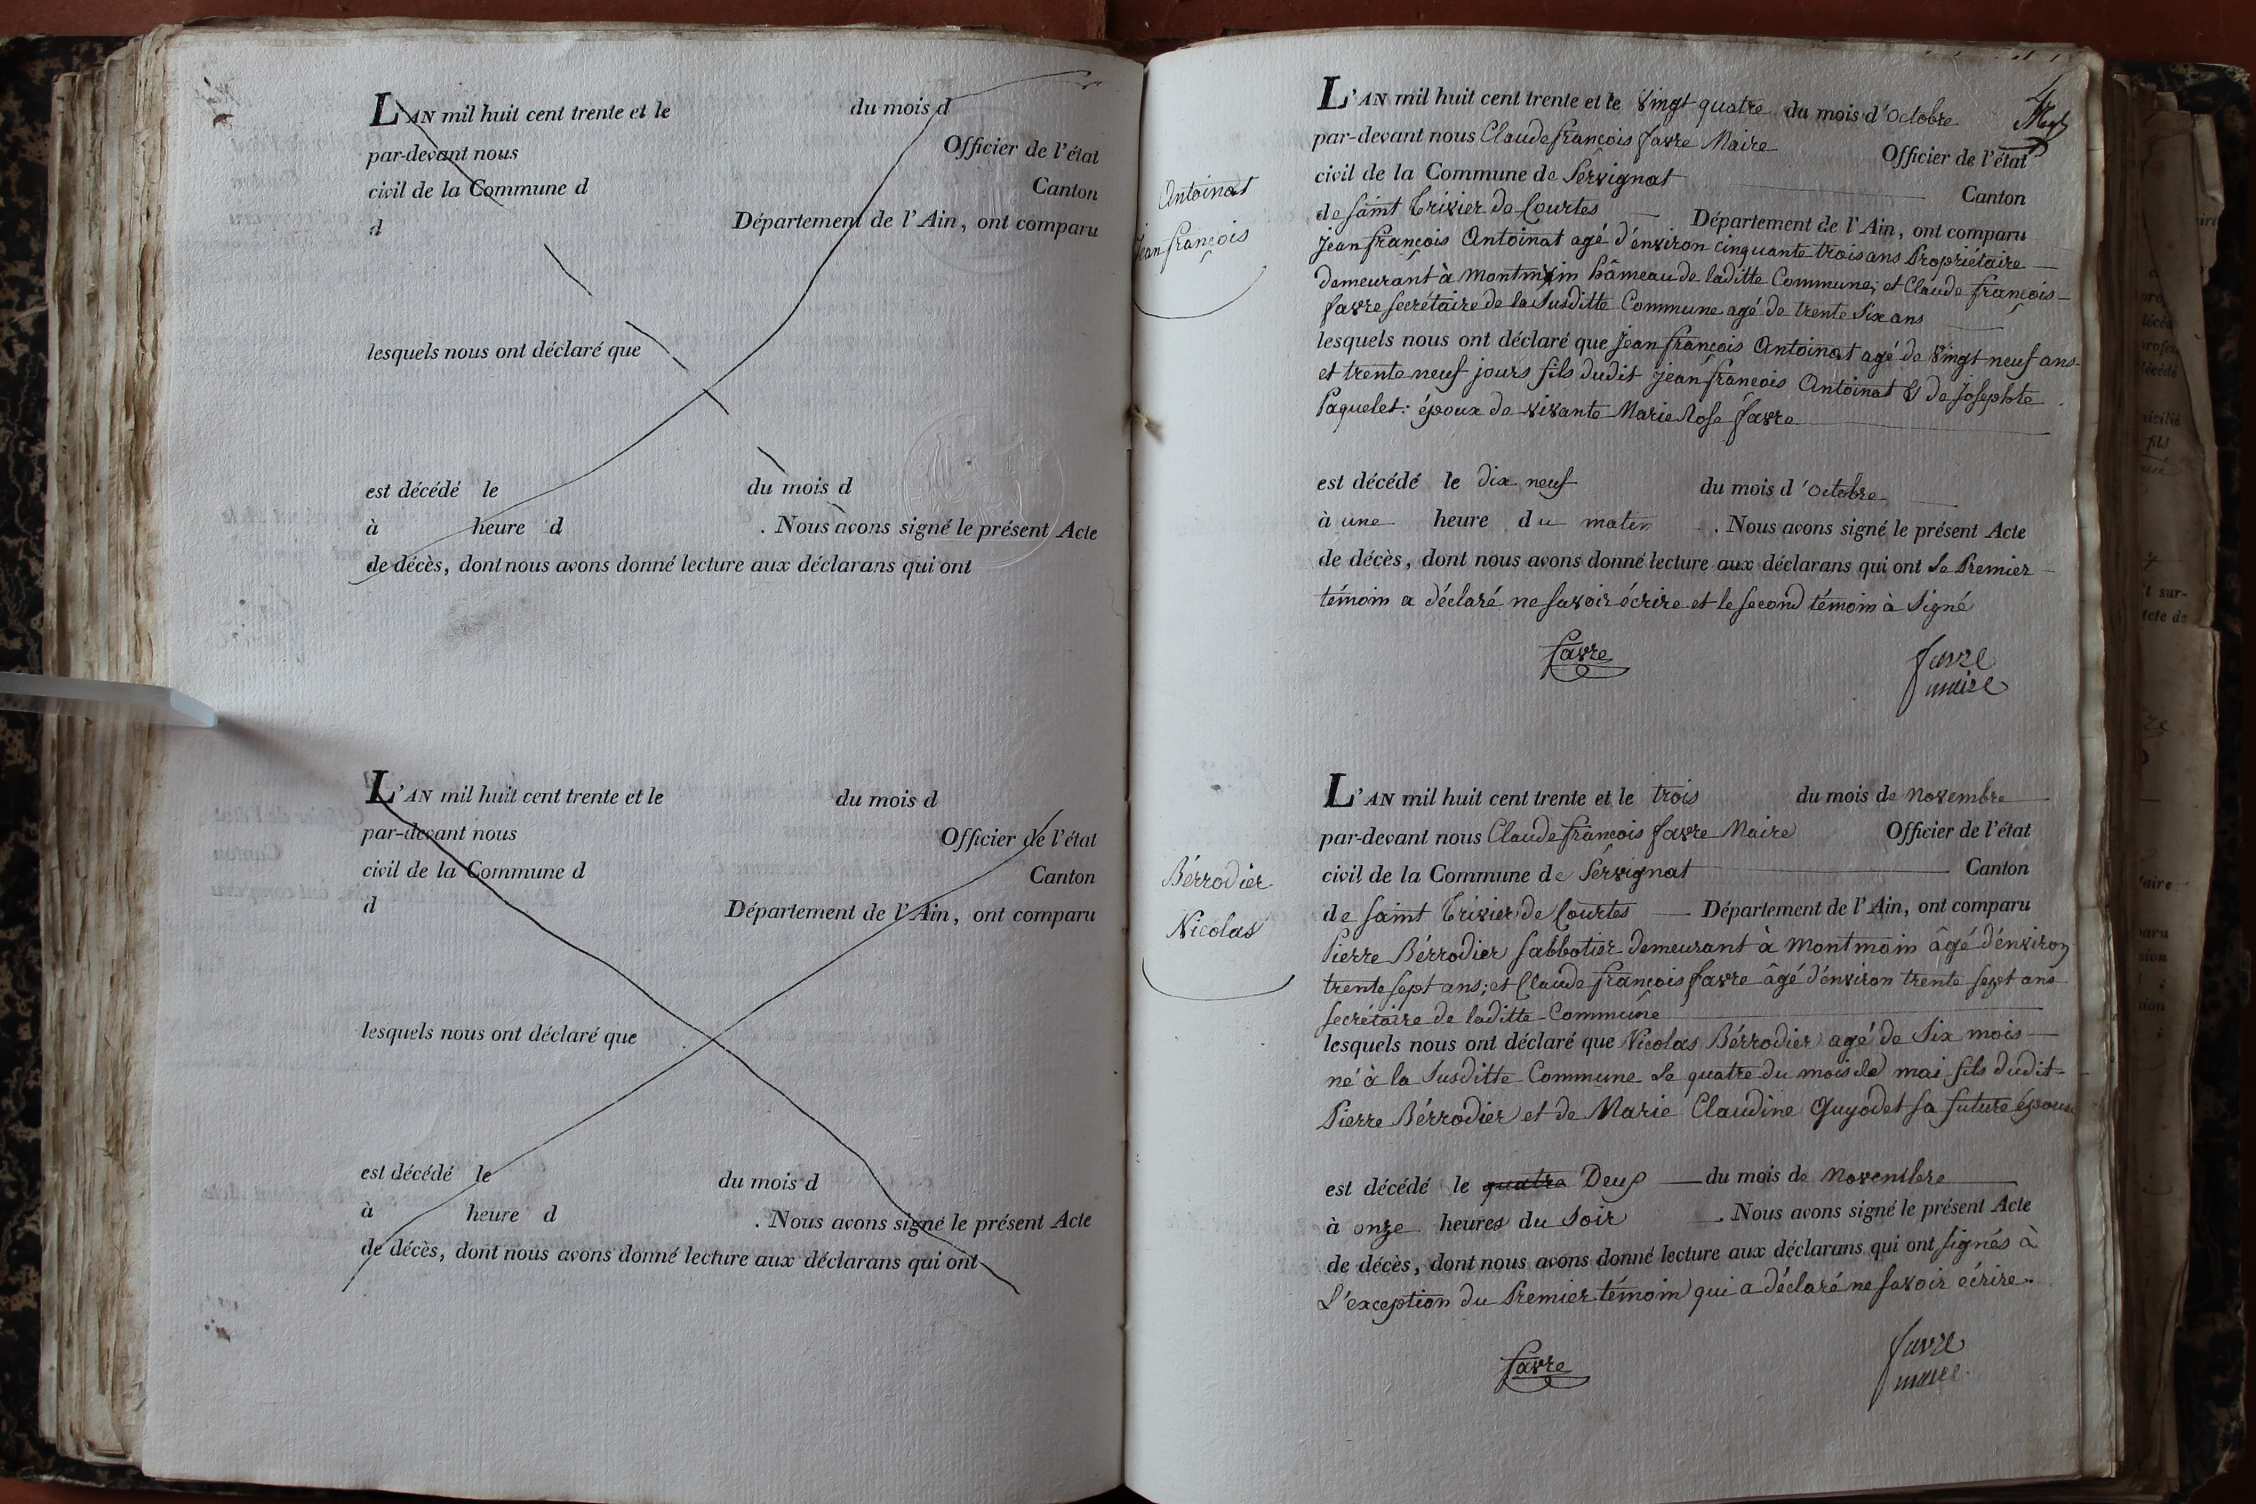 L'AN mil huit cent trente et le du mois d
par-devant nous Officier de l'état
civil de la Commune d Canton
d Département de l'Ain, ont comparu
lesquels nous ont déclaré que
est décédé le du mois d
à heure d . Nous avons signé le présent Acte
de décès, dont nous avons donné lecture aux déclarans qui ont
L'AN mil huit cent trente et le du mois d
par-devant nous Officier de l'état
civil de la Commune d Canton
d Département de l'Ain, ont comparu
lesquels nous ont déclaré que
est décédé le du mois d
à heure d . Nous avons signé le présent Acte
de décès, dont nous avons donné lecture aux déclarans qui ont
Antoinat
Jean françois
L'AN mil huit cent trente et le vingt quatre du mois d'octobre
par-devant nous Claude françois favre Maire Officier de l'état
civil de la Commune de Servignat Canton
de saint Trivier de Courtes Département de l'Ain, ont comparu
Jean françois Antoinat agé d'environ cinquante trois ans Propriétaire
demeurant à montmain hâmeau de laditte Commune; et Claude françois
favre secrétaire de la susditte Commune agé de trente six ans
lesquels nous ont déclaré que Jean françois Antoinat agé de vingt neuf ans
et trente neuf jours fils dudit jean françois Antoinat & de Josephte
Paquelet: époux de vivante Marie Rose favre
est décédé le dix neuf du mois d'octobre
à une heure du matin . Nous avons signé le présent Acte
de décès, dont nous avons donné lecture aux déclarans qui ont le Premier
témoin a déclaré ne savoir écrire et le second témoin à signé
favre favre
maire
Bérrodier
Nicolas
L'AN mil huit cent trente et le trois du mois de novembre
par-devant nous Claude françois favre Maire Officier de l'état
civil de la Commune de Sérvignat Canton
de saint Trivier de Courtes Département de l'Ain, ont comparu
Pierre Bérrodier sabbotier demeurant à montmain âgé d'environ
trente sept ans; et Claude françois favre âgé d'environ trente sept ans
secrétaire de laditte Commune
lesquels nous ont déclaré que Nicolas Bérrodier agé de six mois
né à la susditte Commune le quatre du mois de mai fils dudit
Pierre Bérrodier et de Marie Claudine Guyodet sa future épouse
est décédé le quatre Deux du mois de novembre
à onze heures du soir . Nous avons signé le présent Acte
de décès, dont nous avons donné lecture aux déclarans qui ont signés à
L'exception du Premier témoin qui a déclaré ne savoir écrire.
favre favre
maire